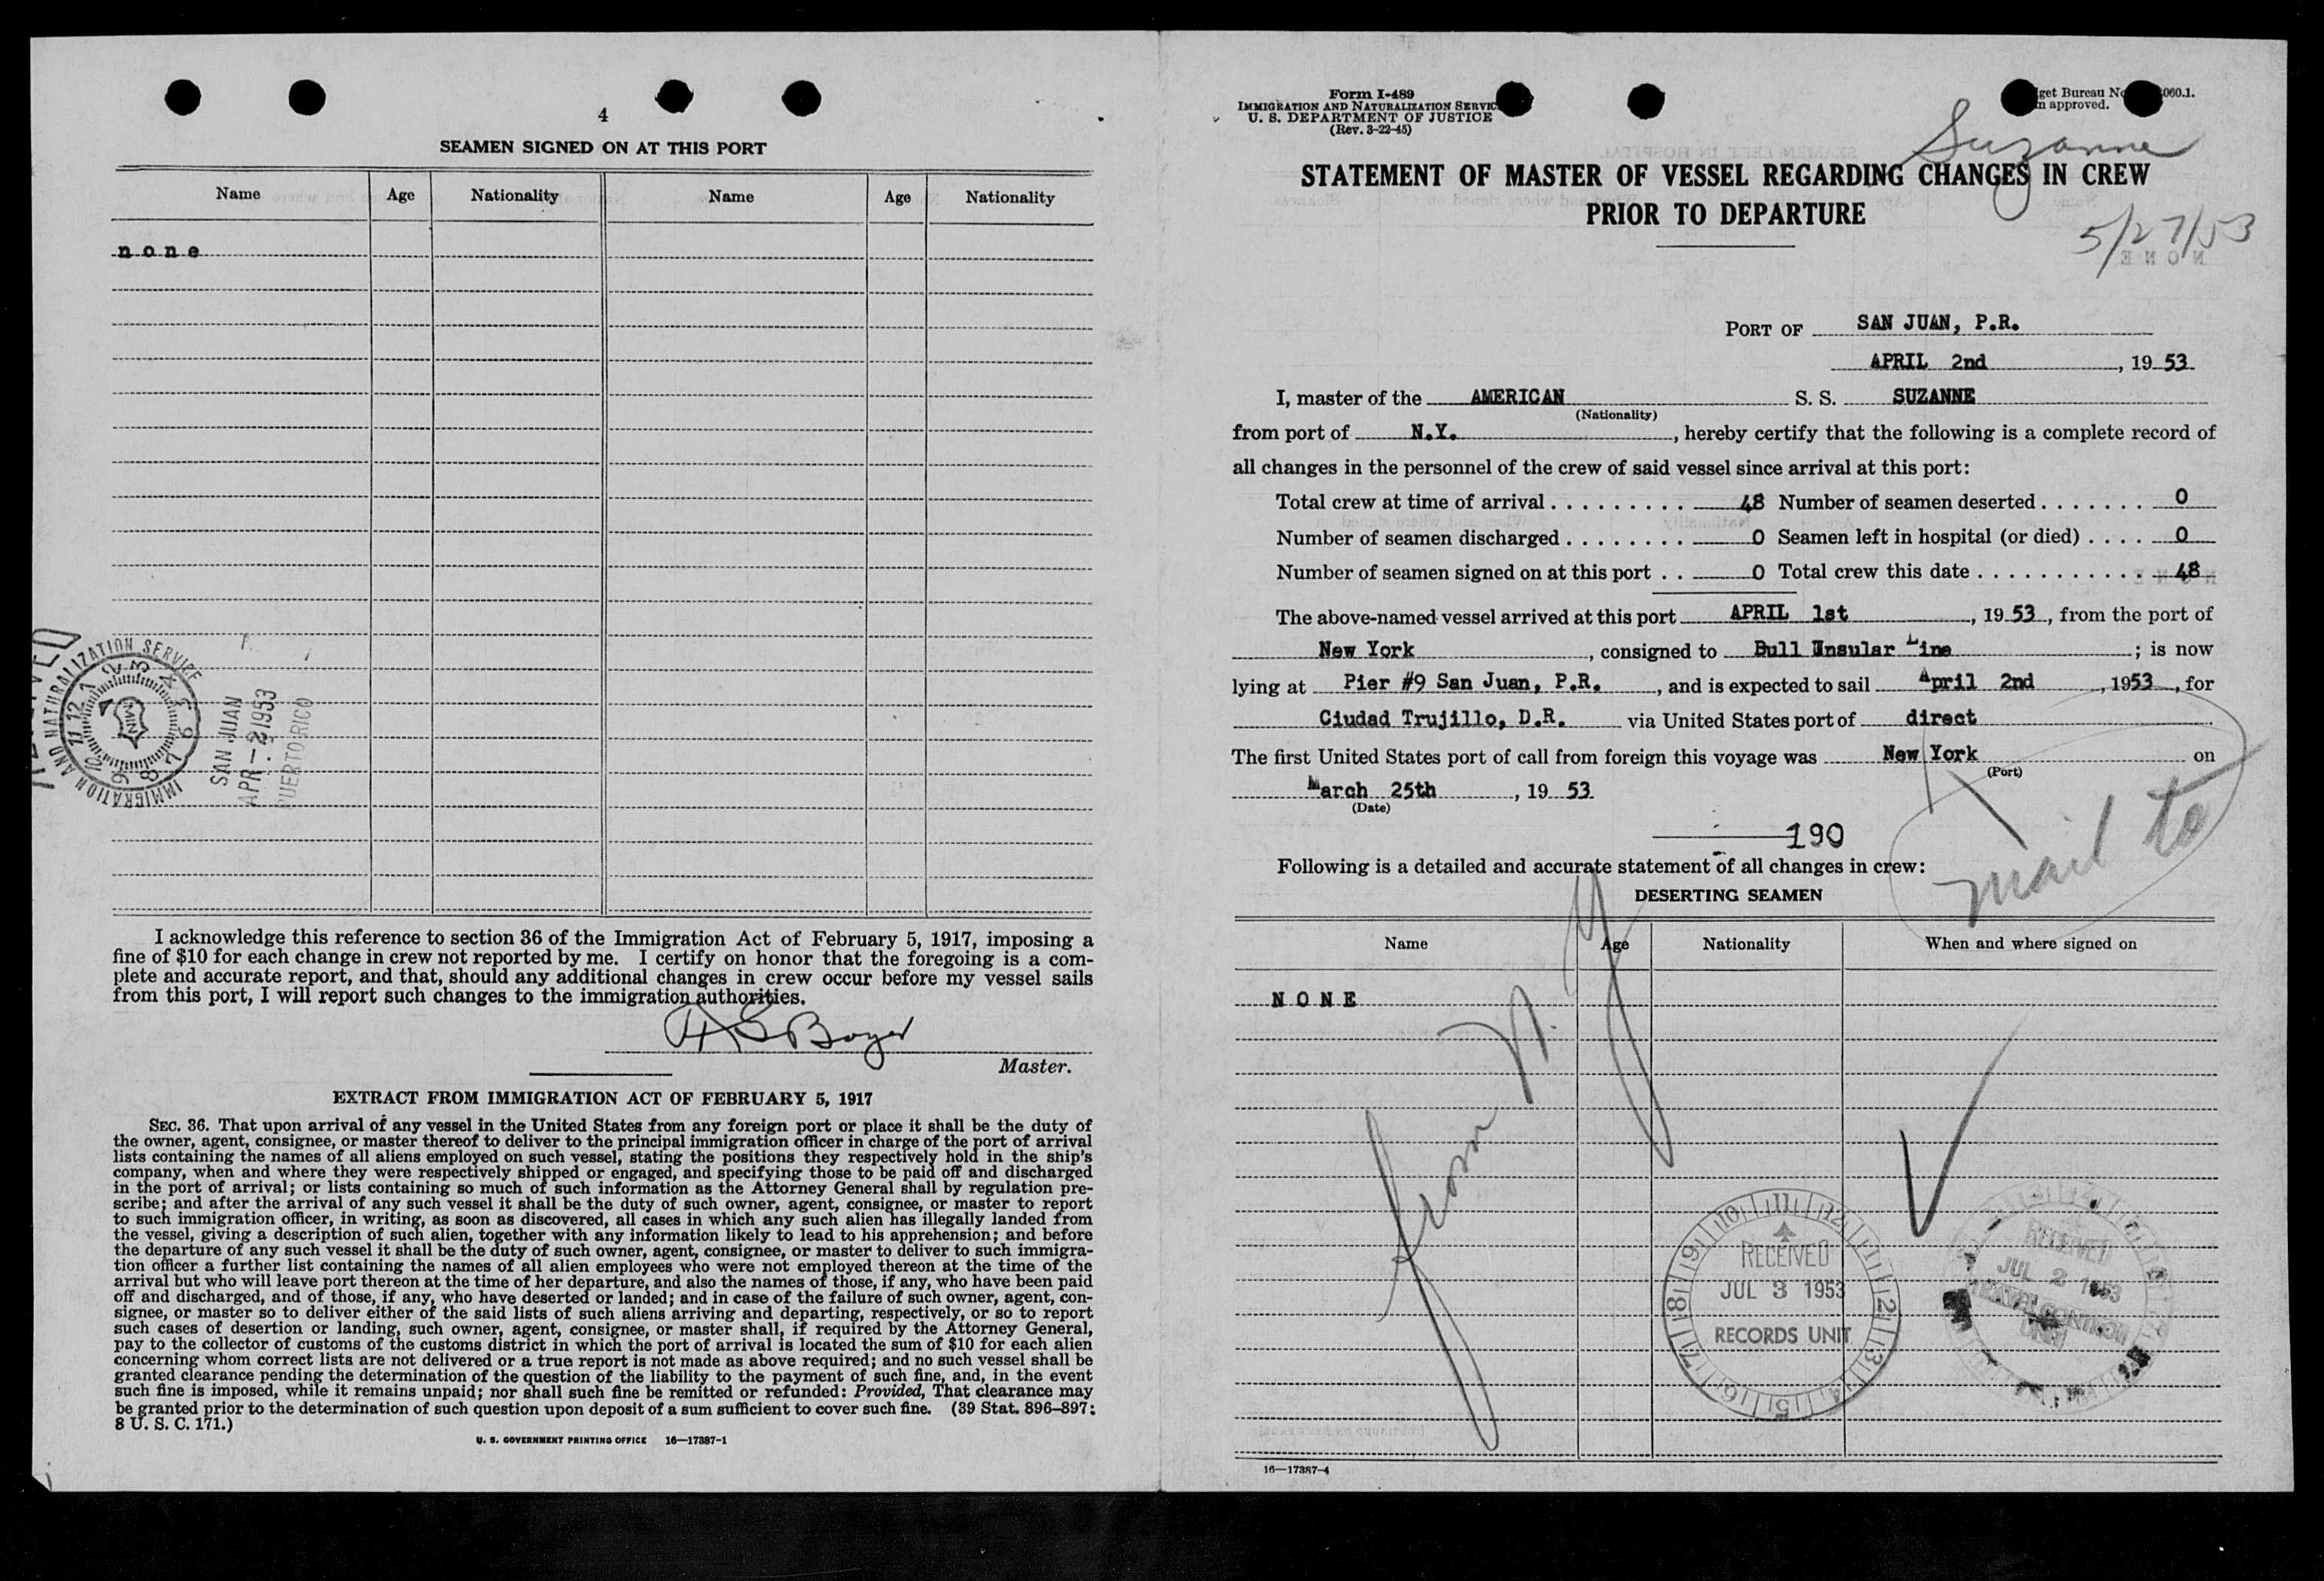 4
SEAMEN SIGNED ON AT THIS PORT
Name Age Nationality Name Age Nationality
none
IMMIGRATION AND NATURALIZATION SERVICE
SAN JUAN
APR - 2 1953
PUERTO RICO
I acknowledge this reference to section 36 of the Immigration Act of February 5, 1917, imposing a
fine of $10 for each change in crew not reported by me. I certify on honor that the foregoing is a com-
plete and accurate report, and that, should any additional changes in crew occur before my vessel sails
from this port, I will report such changes to the immigration authorities.
Boyer
Master.
EXTRACT FROM IMMIGRATION ACT OF FEBRUARY 5, 1917
SEC. 36. That upon arrival of any vessel in the United States from any foreign port or place it shall be the duty of
the owner, agent, consignee, or master thereof to deliver to the principal immigration officer in charge of the port of arrival
lists containing the names of all aliens employed on such vessel, stating the positions they respectively hold in the ship's
company, when and where they were respectively shipped or engaged, and specifying those to be paid off and discharged
in the port of arrival; or lists containing so much of such information as the Attorney General shall by regulation pre-
scribe; and after the arrival of any such vessel it shall be the duty of such owner, agent, consignee, or master to report
to such immigration officer, in writing, as soon as discovered, all cases in which any such alien has illegally landed from
the vessel, giving a description of such alien, together with any information likely to lead to his apprehension; and before
the departure of any such vessel it shall be the duty of such owner, agent, consignee, or master to deliver to such immigra-
tion officer a further list containing the names of all alien employees who were not employed thereon at the time of the
arrival but who will leave port thereon at the time of her departure, and also the names of those, if any, who have been paid
off and discharged, and of those, if any, who have deserted or landed; and in case of the failure of such owner, agent, con-
signee, or master so to deliver either of the said lists of such aliens arriving and departing, respectively, or so to report
such cases of desertion or landing, such owner, agent, consignee, or master shall, if required by the Attorney General,
pay to the collector of customs of the customs district in which the port of arrival is located the sum of $10 for each alien
concerning whom correct lists are not delivered or a true report is not made as above required; and no such vessel shall be
granted clearance pending the determination of the question of the liability to the payment of such fine, and, in the event
such fine is imposed, while it remains unpaid; nor shall such fine be remitted or refunded: Provided, That clearance may
be granted prior to the determination of such question upon deposit of a sum sufficient to cover such fine. (39 Stat. 896–897;
8 U. S. C. 171.)
U. S. GOVERNMENT PRINTING OFFICE 16—17387-1
Form I-489
IMMIGRATION AND NATURALIZATION SERVIC
U. S. DEPARTMENT OF JUSTICE
(Rev. 3-22-45)
get Bureau No 060.1.
approved.
Suzanne
STATEMENT OF MASTER OF VESSEL REGARDING CHANGES IN CREW
PRIOR TO DEPARTURE
5/27/53
PORT OF SAN JUAN, P.R.
APRIL 2nd, 19 53
I, master of the AMERICAN S. S. SUZANNE
(Nationality)
from port of N.Y., hereby certify that the following is a complete record of
all changes in the personnel of the crew of said vessel since arrival at this port:
Total crew at time of arrival 48 Number of seamen deserted 0
Number of seamen discharged 0 Seamen left in hospital (or died) 0
Number of seamen signed on at this port 0 Total crew this date 48
The above-named vessel arrived at this port APRIL 1st, 19 53, from the port of
New York, consigned to Bull Unsular Line; is now
lying at Pier #9 San Juan, P.R., and is expected to sail April 2nd, 1953, for
Ciudad Trujillo, D.R. via United States port of direct
The first United States port of call from foreign this voyage was New York on
(Port)
March 25th, 19 53
(Date)
190
mail to
Following is a detailed and accurate statement of all changes in crew:
DESERTING SEAMEN
Name Age Nationality When and where signed on
NONE
from N. Y
RECEIVED
JUL 3 1953
RECORDS UNIT
RECEIVED
JUL 2 1953
TRAVEL CONTROL
UNIT
16—17387-4